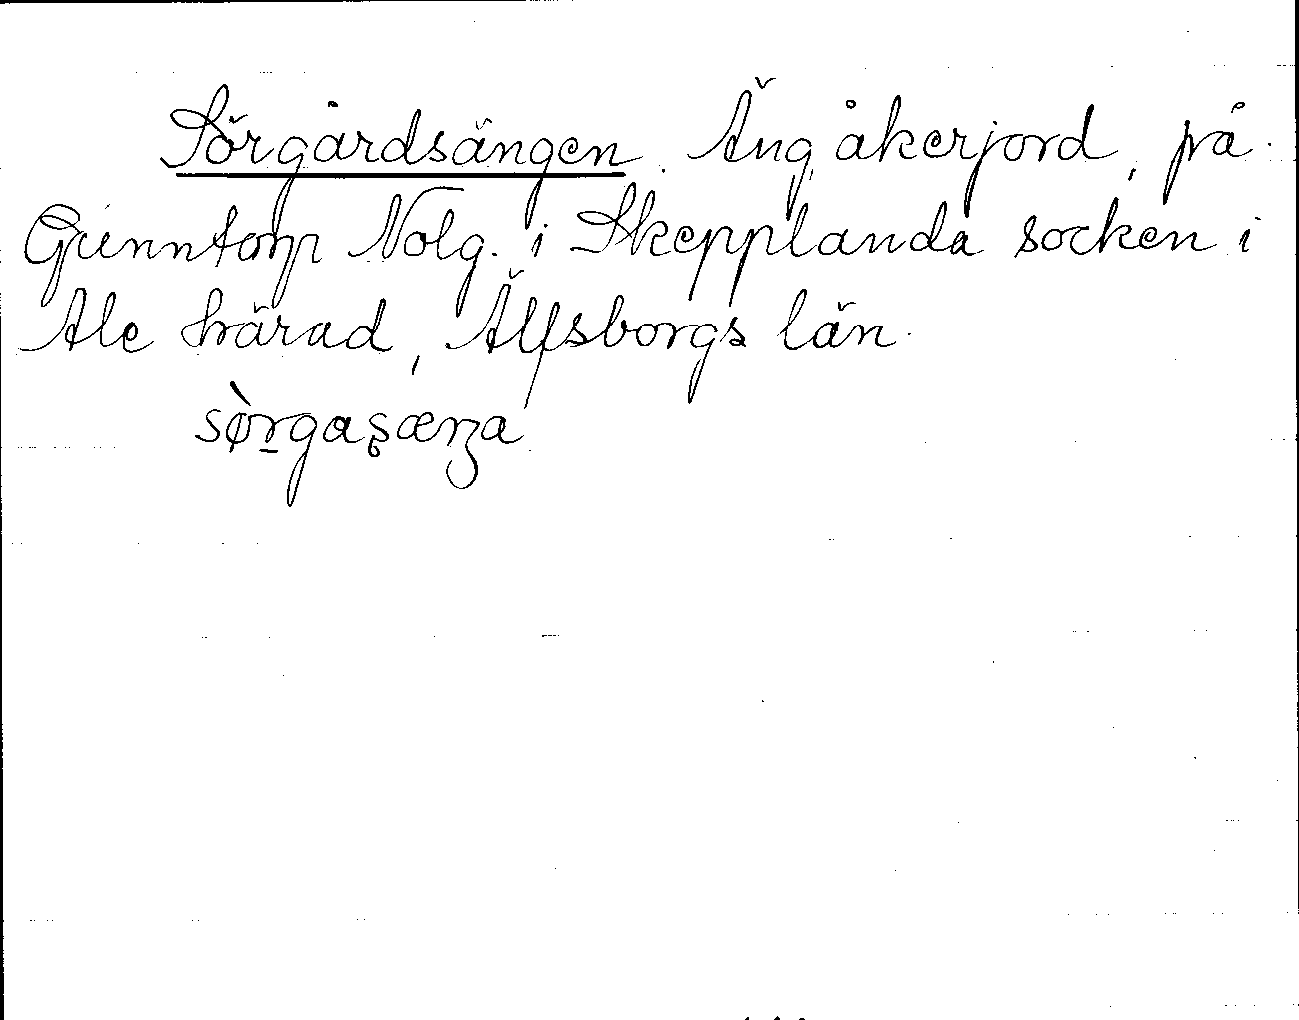 Sörgårdsängen. Äng, åkerjord, på
Gunntorp Nolg. i Skepplanda socken i
Ale härad, Älfsborgs län.
sø̀rgaʂæŋa